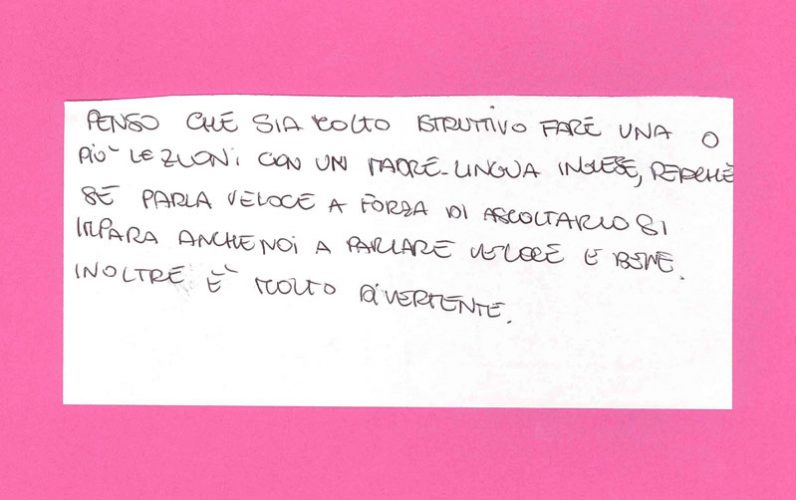 PENSO CHE SIA MOLTO ISTRUTTIVO FARE UNA O
PIÙ LEZIONI CON UN MADRE-LINGUA INGLESE, PERCHÈ
SE PARLA VELOCE A FORZA DI ASCOLTARLO SI
IMPARA ANCHE NOI A PARLARE VELOCE E BENE.
INOLTRE È MOLTO DIVERTENTE.